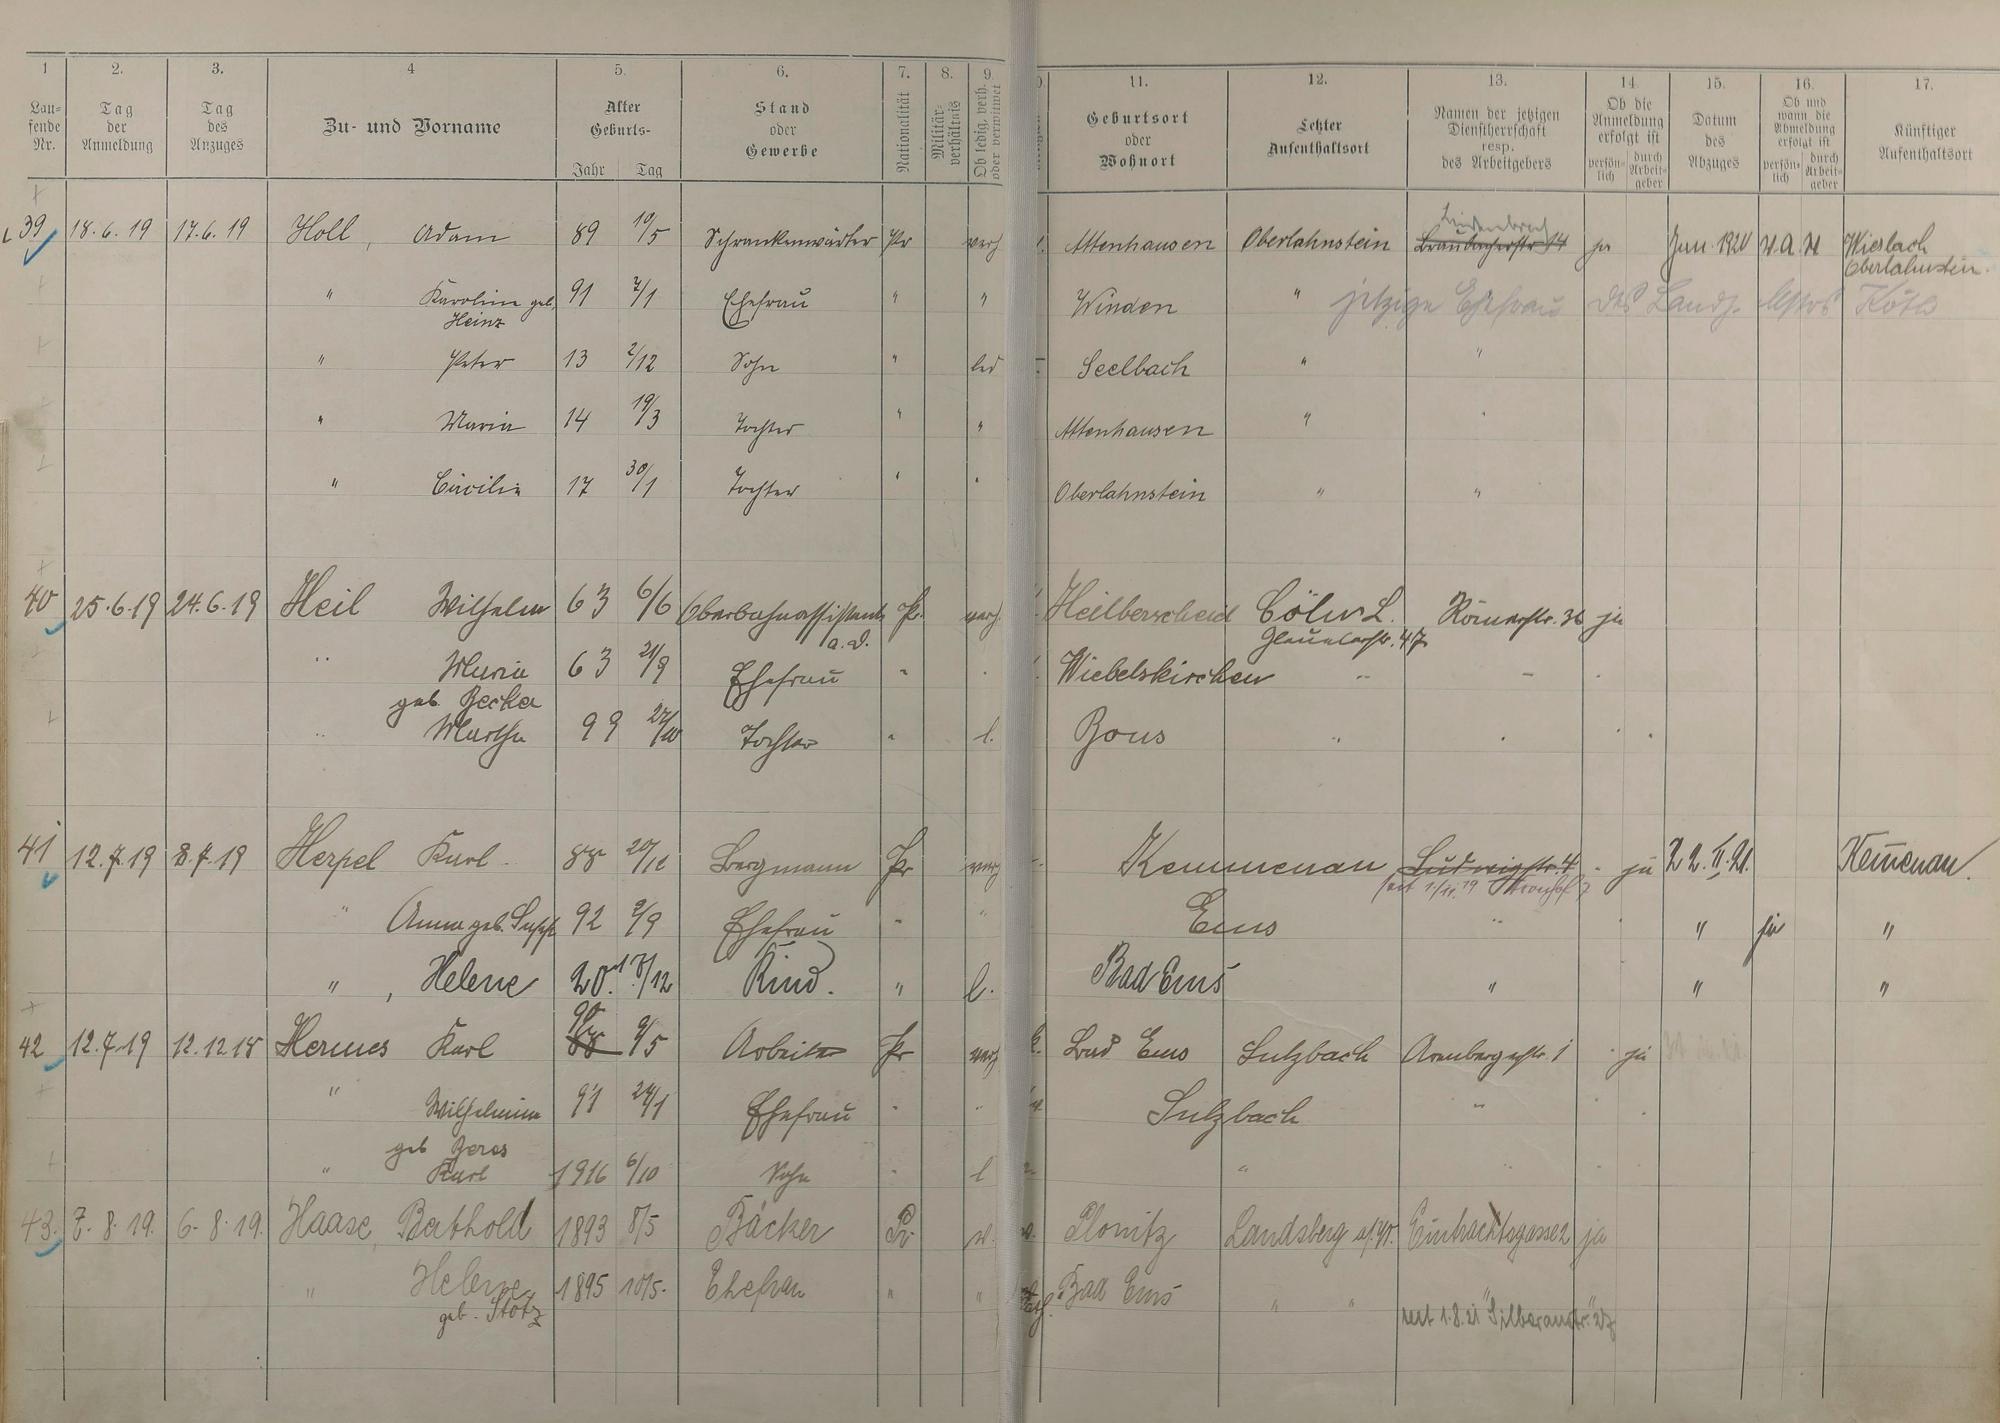 1 2. 3. 4 5. 6. 7. 8. 9. 11. 12. 13. 14 15. 16. 17.
Lau-
fende
Nr.
Tag
der
Anmeldung
Tag
des
Anzuges
Zu- und Vorname
Alter
Geburts-
Jahr Tag
Stand
oder
Gewerbe
Nationalität
Militär-
verhältnis
Ob ledig, verh.
oder verwitwet
Geburtsort
oder
Wohnort
Letzter
Aufenthaltsort
Namen der jetzigen
Dienstherrschaft
resp.
des Arbeitgebers
Ob die
Anmeldung
erfolgt ist
persön-
lich
durch
Arbeit-
geber
Datum
des
Abzuges
Ob und
wann die
Abmeldung
erfolgt ist
persön-
lich
durch
Arbeit-
geber
Künftiger
Aufenthaltsort
39 18. 6. 19 17. 6. 19 Holl, Adam 89 19/5 Schrankenwärter Pr verh Attenhausen Oberlahnstein Braubacherstr 14 ja Jan. 1920 v. a. W
Oberlahnstein.
" Karoline geb. 91 7/1 Ehefrau " " Winden " jetzige Ehefrau des
Heinz
" Peter 13 2/12 Sohn " led Seelbach " "
" Maria 14 19/3 Tochter " " Attenhausen "
" Cäcilia 17 30/1 Tochter " " Oberlahnstein " "
40 25. 6. 19 24. 6. 19 Heil Wilhelm 63 6/6 Oberbahnassistent Pr. verh. Heilberscheid Cöln L. Römerstr. 36 ja
a. D.
" Maria 63 21/9 Ehefrau " Wiebelskirchen "
geb. Becker
" Martha 99 Tochter " l. Bous "
41 12. 7. 19 8. 7. 19 Herpel Karl 88 20/12 Bergmann Pr verh Kemmenau Ludwigstr. 4 ja 22. II. 21. Kemenau.
seit 1/11. 19
" Anna geb. 92 2/9 Ehefrau " " Ems " " ja "
", Helene 20. 17/12 Kind. " l. Bad Ems " " "
90
42 12. 7. 19 12. 12 18 Hermes Karl 88 9/5 Arbeiter Pr verh Bad Ems Sulzbach Arenbergstr. 1 ja
" Wilhelmine 91 24/1 Ehefrau " " Sulzbach "
geb
" Karl 1916 6/10 Sohn " l "
43. 7. 8. 19. 6. 8. 19. Haase, Bathold 1893 8/5 Bäcker Pr v. Plonitz Landsberg a/W. Eintrachtsgasse 2 ja
" Helene 1895 10/5. Ehefrau " " Bad Ems " "
geb. Stotz
seit 1. 8. 21 "Silberaustr."